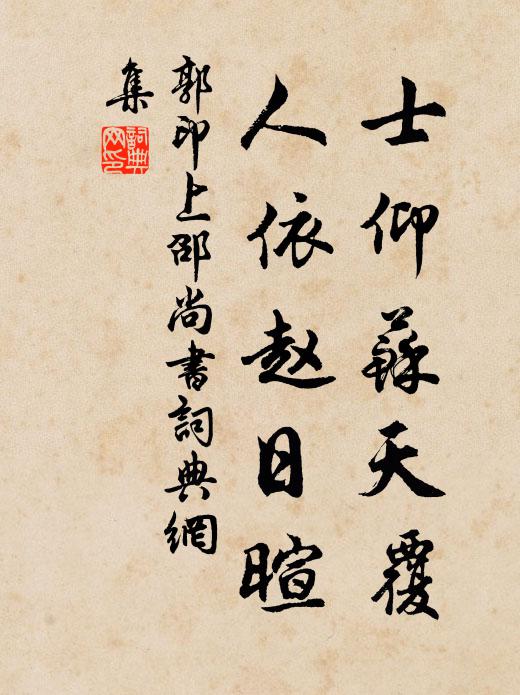 士仰蘇天覆
人依趙日暄
郭印上邵尚書詞典網
集
詞典
网印